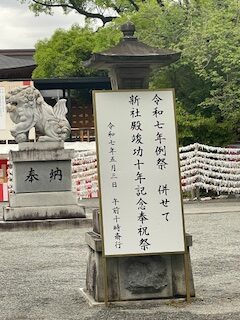 令和七年例祭 併せて
新社殿竣功十年記念奉祝祭
令和七年五月三日 午前十時斎行
奉納